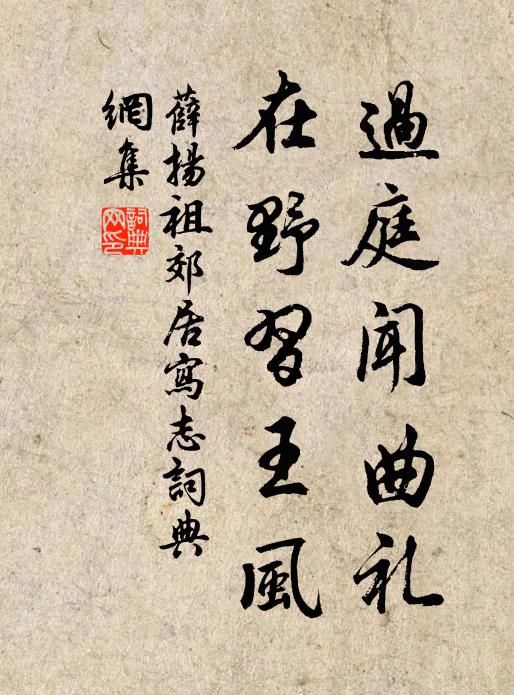 過庭聞曲礼
在野習王風
薛揚祖郊居寫志詞典
網集
詞典網印